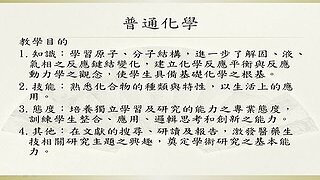 普通化學
教學目的
1. 知識：學習原子、分子結構，進一步了解因、液、
氣相之反應鍵結變化，建立化學反應平衡與反應
動力學之觀念，使學生具備基礎化學之根基。
2. 技能：熟悉化合物的種類與特性，以生活上的應
用。
3. 態度：培養獨立學習及研究的能力之專業態度，
訓練學生整合、應用、邏輯思考和創新之能力。
4. 其他：在文獻的搜尋、研讀及報告，激發醫藥生
技相關研究主題之興趣，奠定學術研究之基本能
力。